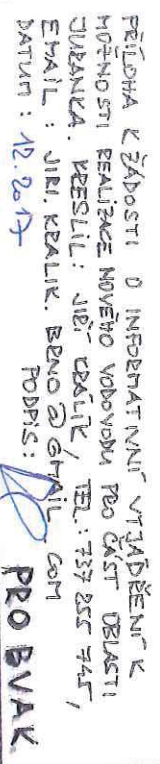 PŘÍLOHA K ŽÁDOSTI O INFORMATIVNÍ VYJÁDŘENÍ K
MOŽNOSTI REALIZACE NOVÉHO VODOVODU PRO ČÁST OBLASTI
JURANKA. KRESLIL: JIŘÍ KRÁLÍK / TEL.: 737 255 745,
EMAIL: JIRI.KRALIK.BRNO@GMAIL.COM
DATUM: 12.2017 PODPIS: PRO BVAK